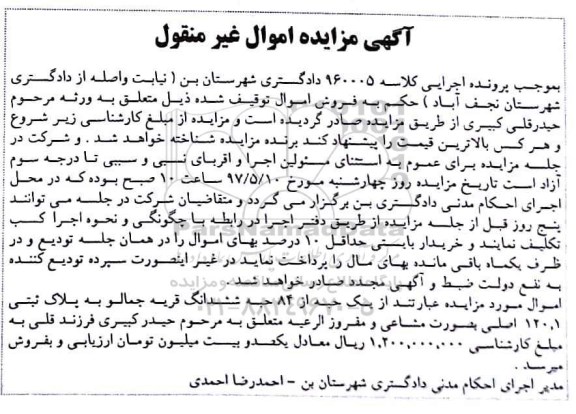 آگهی مزایده اموال غیر منقول
بموجب پرونده اجرایی کلاسه ۹۶۰۰۰۵ دادگستری شهرستان بن ( نیابت واصله از دادگستری
شهرستان نجف آباد ) حکم به فروش اموال توقیف شده ذیل متعلق به ورثه مرحوم
حیدرقلی کبیری از طریق مزایده صادر گردیده است و مزایده از مبلغ کارشناسی زیر شروع
و هر کس بالاترین قیمت را پیشنهاد کند برنده مزایده شناخته خواهد شد . و شرکت در
جلسه مزایده برای عموم به استثنای مسئولین اجرا و اقربای نسبی و سببی تا درجه سوم
آزاد است تاریخ مزایده روز چهارشنبه مورخ ۹۷/۵/۱۰ ساعت ۱۰ صبح بوده که در محل
اجرای احکام مدنی دادگستری بن برگزار می گردد و متقاضیان شرکت در جلسه می توانند
پنج روز قبل از جلسه مزایده از طریق دفتر اجرا در رابطه با چگونگی و نحوه اجرا کسب
تکلیف نمایند و خریدار بایستی حداقل ۱۰ درصد بهای اموال را در همان جلسه تودیع و در
ظرف یکماه باقی مانده بهای مال را پرداخت نماید در غیر اینصورت سپرده تودیع کننده
به نفع دولت ضبط و آگهی مجدد صادر خواهد شد .
اموال مورد مزایده عبارتند از یک حبه از ۸۴ حبه ششدانگ قریه جمالو به پلاک ثبتی
۱۲۰,۱ اصلی بصورت مشاعی و مفروز الرعیه متعلق به مرحوم حیدر کبیری فرزند قلی به
مبلغ کارشناسی ۱,۲۰۰,۰۰۰,۰۰۰ ریال معادل یکصدو بیست میلیون تومان ارزیابی و بفروش
میرسد .
مدیر اجرای احکام مدنی دادگستری شهرستان بن - احمدرضا احمدی
ParsNamadData
۰۲۱-۸۸۳۴۹۶۷۰-۵